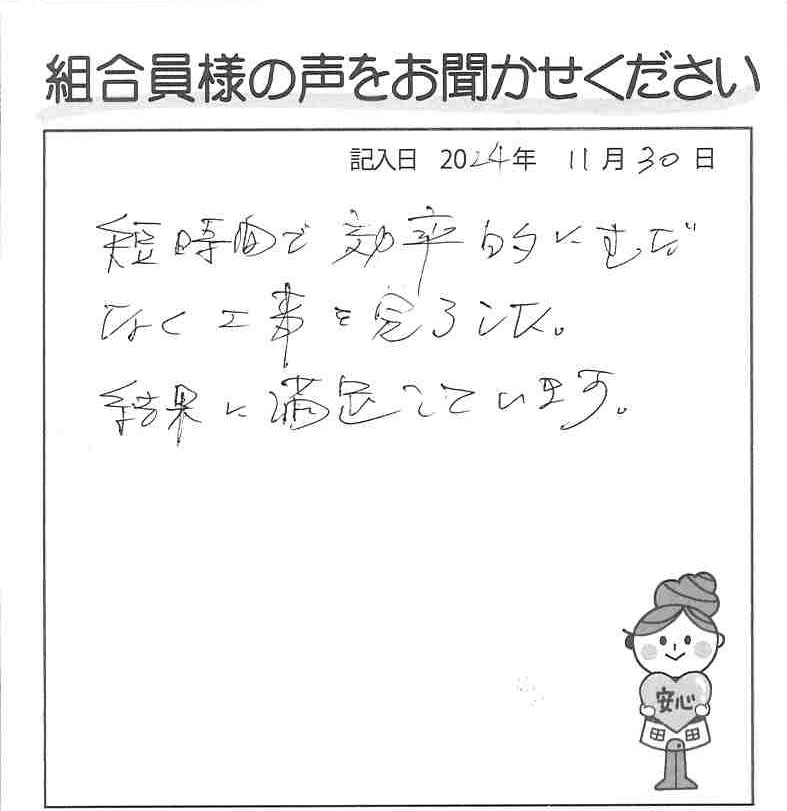 組合員様の声をお聞かせください
記入日 2024年 11月30日
短時間で効率的にむだ
なく工事を完了した。
結果に満足しています。
安心